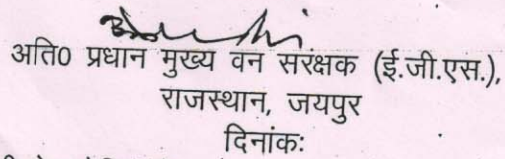 अति0 प्रधान मुख्य वन सरंक्षक (ई.जी.एस.),
राजस्थान, जयपुर
दिनांकः